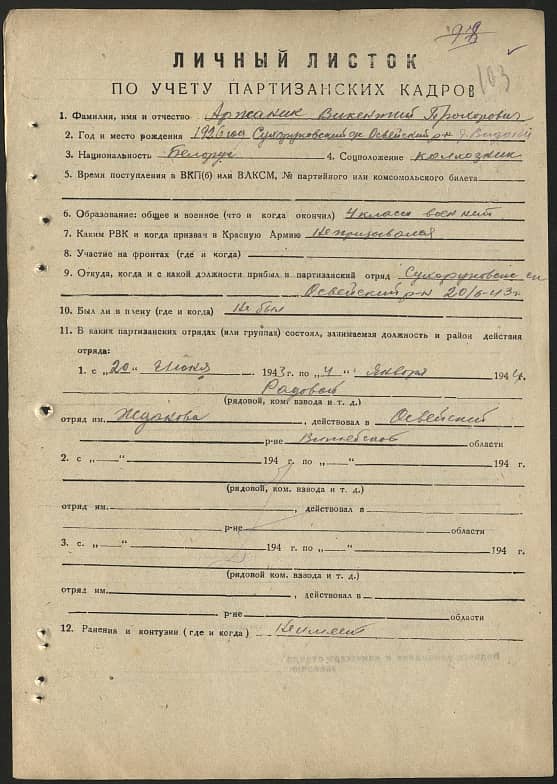 103
ЛИЧНЫЙ ЛИСТОК
ПО УЧЕТУ ПАРТИЗАНСКИХ КАДРОВ
1. Фамилия, имя и отчество Аржаник Викентий Прохорович
2. Год и место рождения Освейский р-н
3. Национальность Белорус 4. Соцположение колхозник
5. Время поступления в ВКП(б) или ВЛКСМ, № партийного или комсомольского билета
6. Образование: общее и военное (что и когда окончил) 4 класса воен нет
7. Каким РВК и когда призван в Красную Армию Не призывался
8. Участие на фронтах (где и когда)
9. Откуда, когда и с какой должности прибыл в партизанский отряд
Освейский р-н 20/6-43г.
10. Был ли в плену (где и когда) Не был
11. В каких партизанских отрядах (или группах) состоял, занимаемая должность и район действия
отряда:
1. с „20“ Июня 1943 г. по „4“ Января 1944 г.
Рядовой
(рядовой, ком. взвода и т. д.)
отряд им. , действовал в Освейский
р-не Витебской области
2. с „ “ 194 г. по „ “ 194 г.
(рядовой, ком. взвода и т. д.)
отряд им. , действовал в
р-не области
3. с „ “ 194 г. по „ “ 194 г.
(рядовой ком. взвода и т. д.)
отряд им. , действовал в
р-не области
12. Ранения и контузии (где и когда) Не имеет